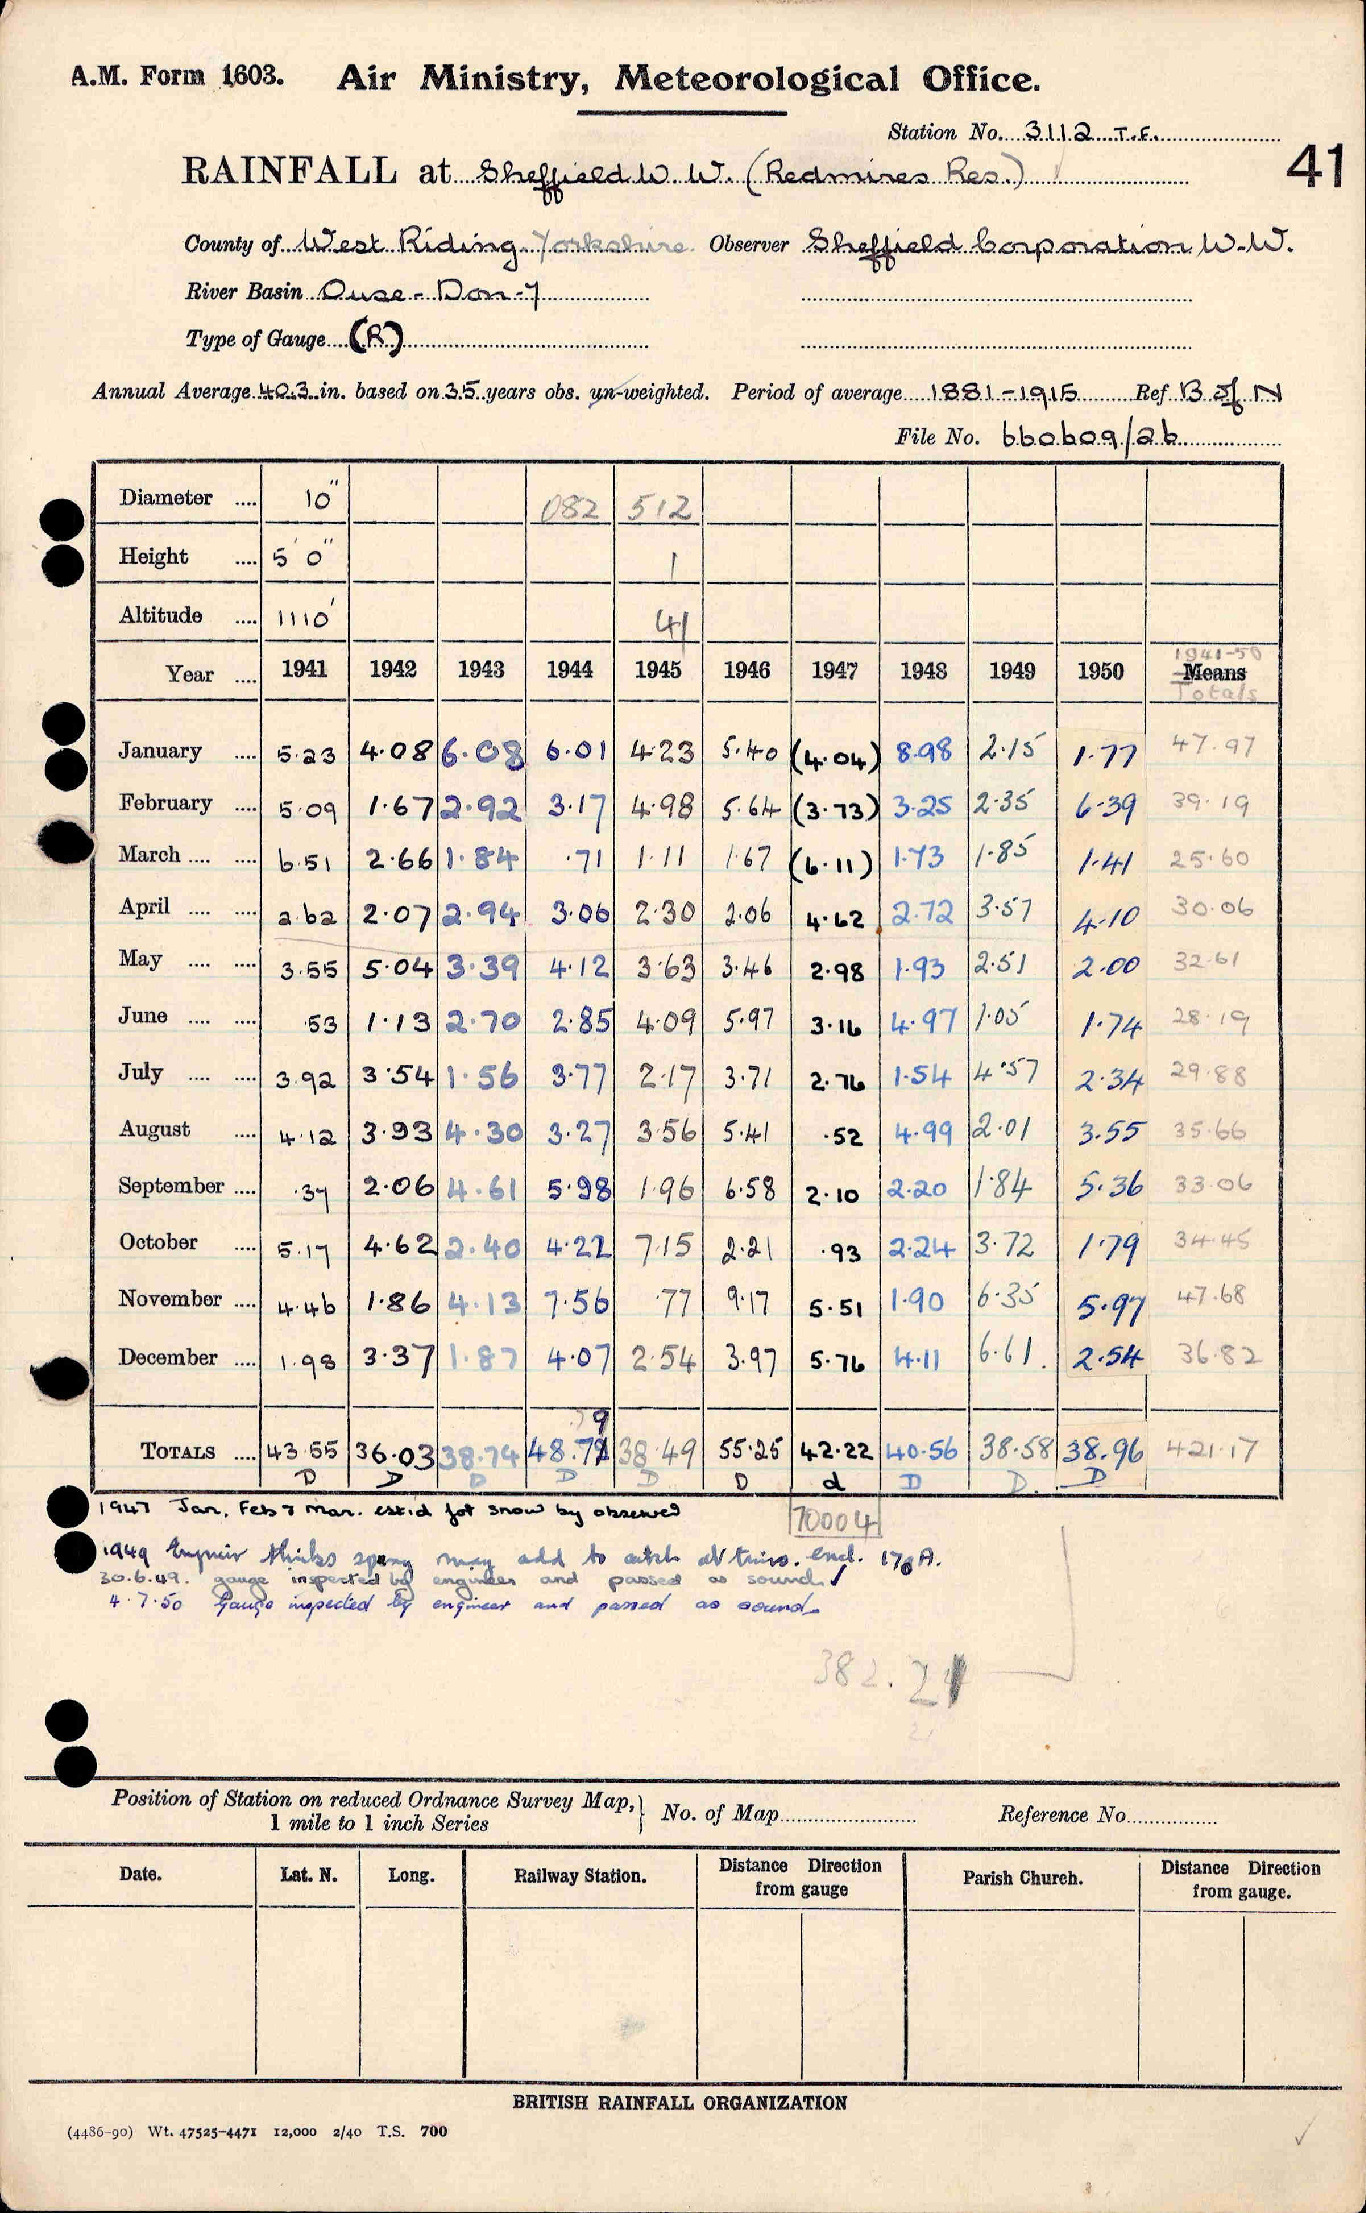 A.M. Form 1603. Air Ministry, Meteorological Office.
Station No. 3112 T.F.
41
RAINFALL at Sheffield W. W. (Redmires Res.)
County of West Riding Yorkshire Observer Sheffield Corporation W.W.
River Basin Ouse - Don-7
Type of Gauge (R)
Annual Average 40.3 in. based on 35 years obs. un-weighted. Period of average 1881-1915 Ref B of N
File No. 660609/26
Diameter .... 10" 082 512
Height .... 5' 0" 1
Altitude .... 1110' 41
Year .... 1941 1942 1943 1944 1945 1946 1947 1948 1949 1950 1941-50 Means Totals
January .... 5.23 4.08 6.08 6.01 4.23 5.40 (4.04) 8.98 2.15 1.77 47.97
February .... 5.09 1.67 2.92 3.17 4.98 5.64 (3.73) 3.25 2.35 6.39 39.19
March .... .... 6.51 2.66 1.84 .71 1.11 1.67 (6.11) 1.73 1.85 1.41 25.60
April .... .... 2.62 2.07 2.94 3.06 2.30 2.06 4.62 2.72 3.57 4.10 30.06
May .... .... 3.55 5.04 3.39 4.12 3.63 3.46 2.98 1.93 2.51 2.00 32.61
June .... .... .53 1.13 2.70 2.85 4.09 5.97 3.16 4.97 1.05 1.74 28.19
July .... .... 3.92 3.54 1.56 3.77 2.17 3.71 2.76 1.54 4.57 2.34 29.88
August .... 4.12 3.93 4.30 3.27 3.56 5.41 .52 4.99 2.01 3.55 35.66
September .... .37 2.06 4.61 5.98 1.96 6.58 2.10 2.20 1.84 5.36 33.06
October .... 5.17 4.62 2.40 4.22 7.15 2.21 .93 2.24 3.72 1.79 34.45
November .... 4.46 1.86 4.13 7.56 .77 9.17 5.51 1.90 6.35 5.97 47.68
December .... 1.98 3.37 1.87 4.07 2.54 3.97 5.76 4.11 6.61 2.54 36.82
9
TOTALS .... 43.55 36.03 38.74 48.79 38.49 55.25 42.22 40.56 38.58 38.96 421.17
D D D D D D d D D. D
1947 Jan, Feb & Mar. est'd for snow by observer
70004
1949 thinks spray may add to catch at times. encl. 178A.
30.6.49. gauge inspected by engineer and passed as sound
4.7.50 Gauge inspected by engineer and passed as sound
382.21
21
Position of Station on reduced Ordnance Survey Map, } No. of Map Reference No.
1 mile to 1 inch Series
Date. Lat. N. Long. Railway Station. Distance Direction from gauge Parish Church. Distance Direction from gauge.
BRITISH RAINFALL ORGANIZATION
(4486-90) Wt. 47525-4471 12,000 2/40 T.S. 700